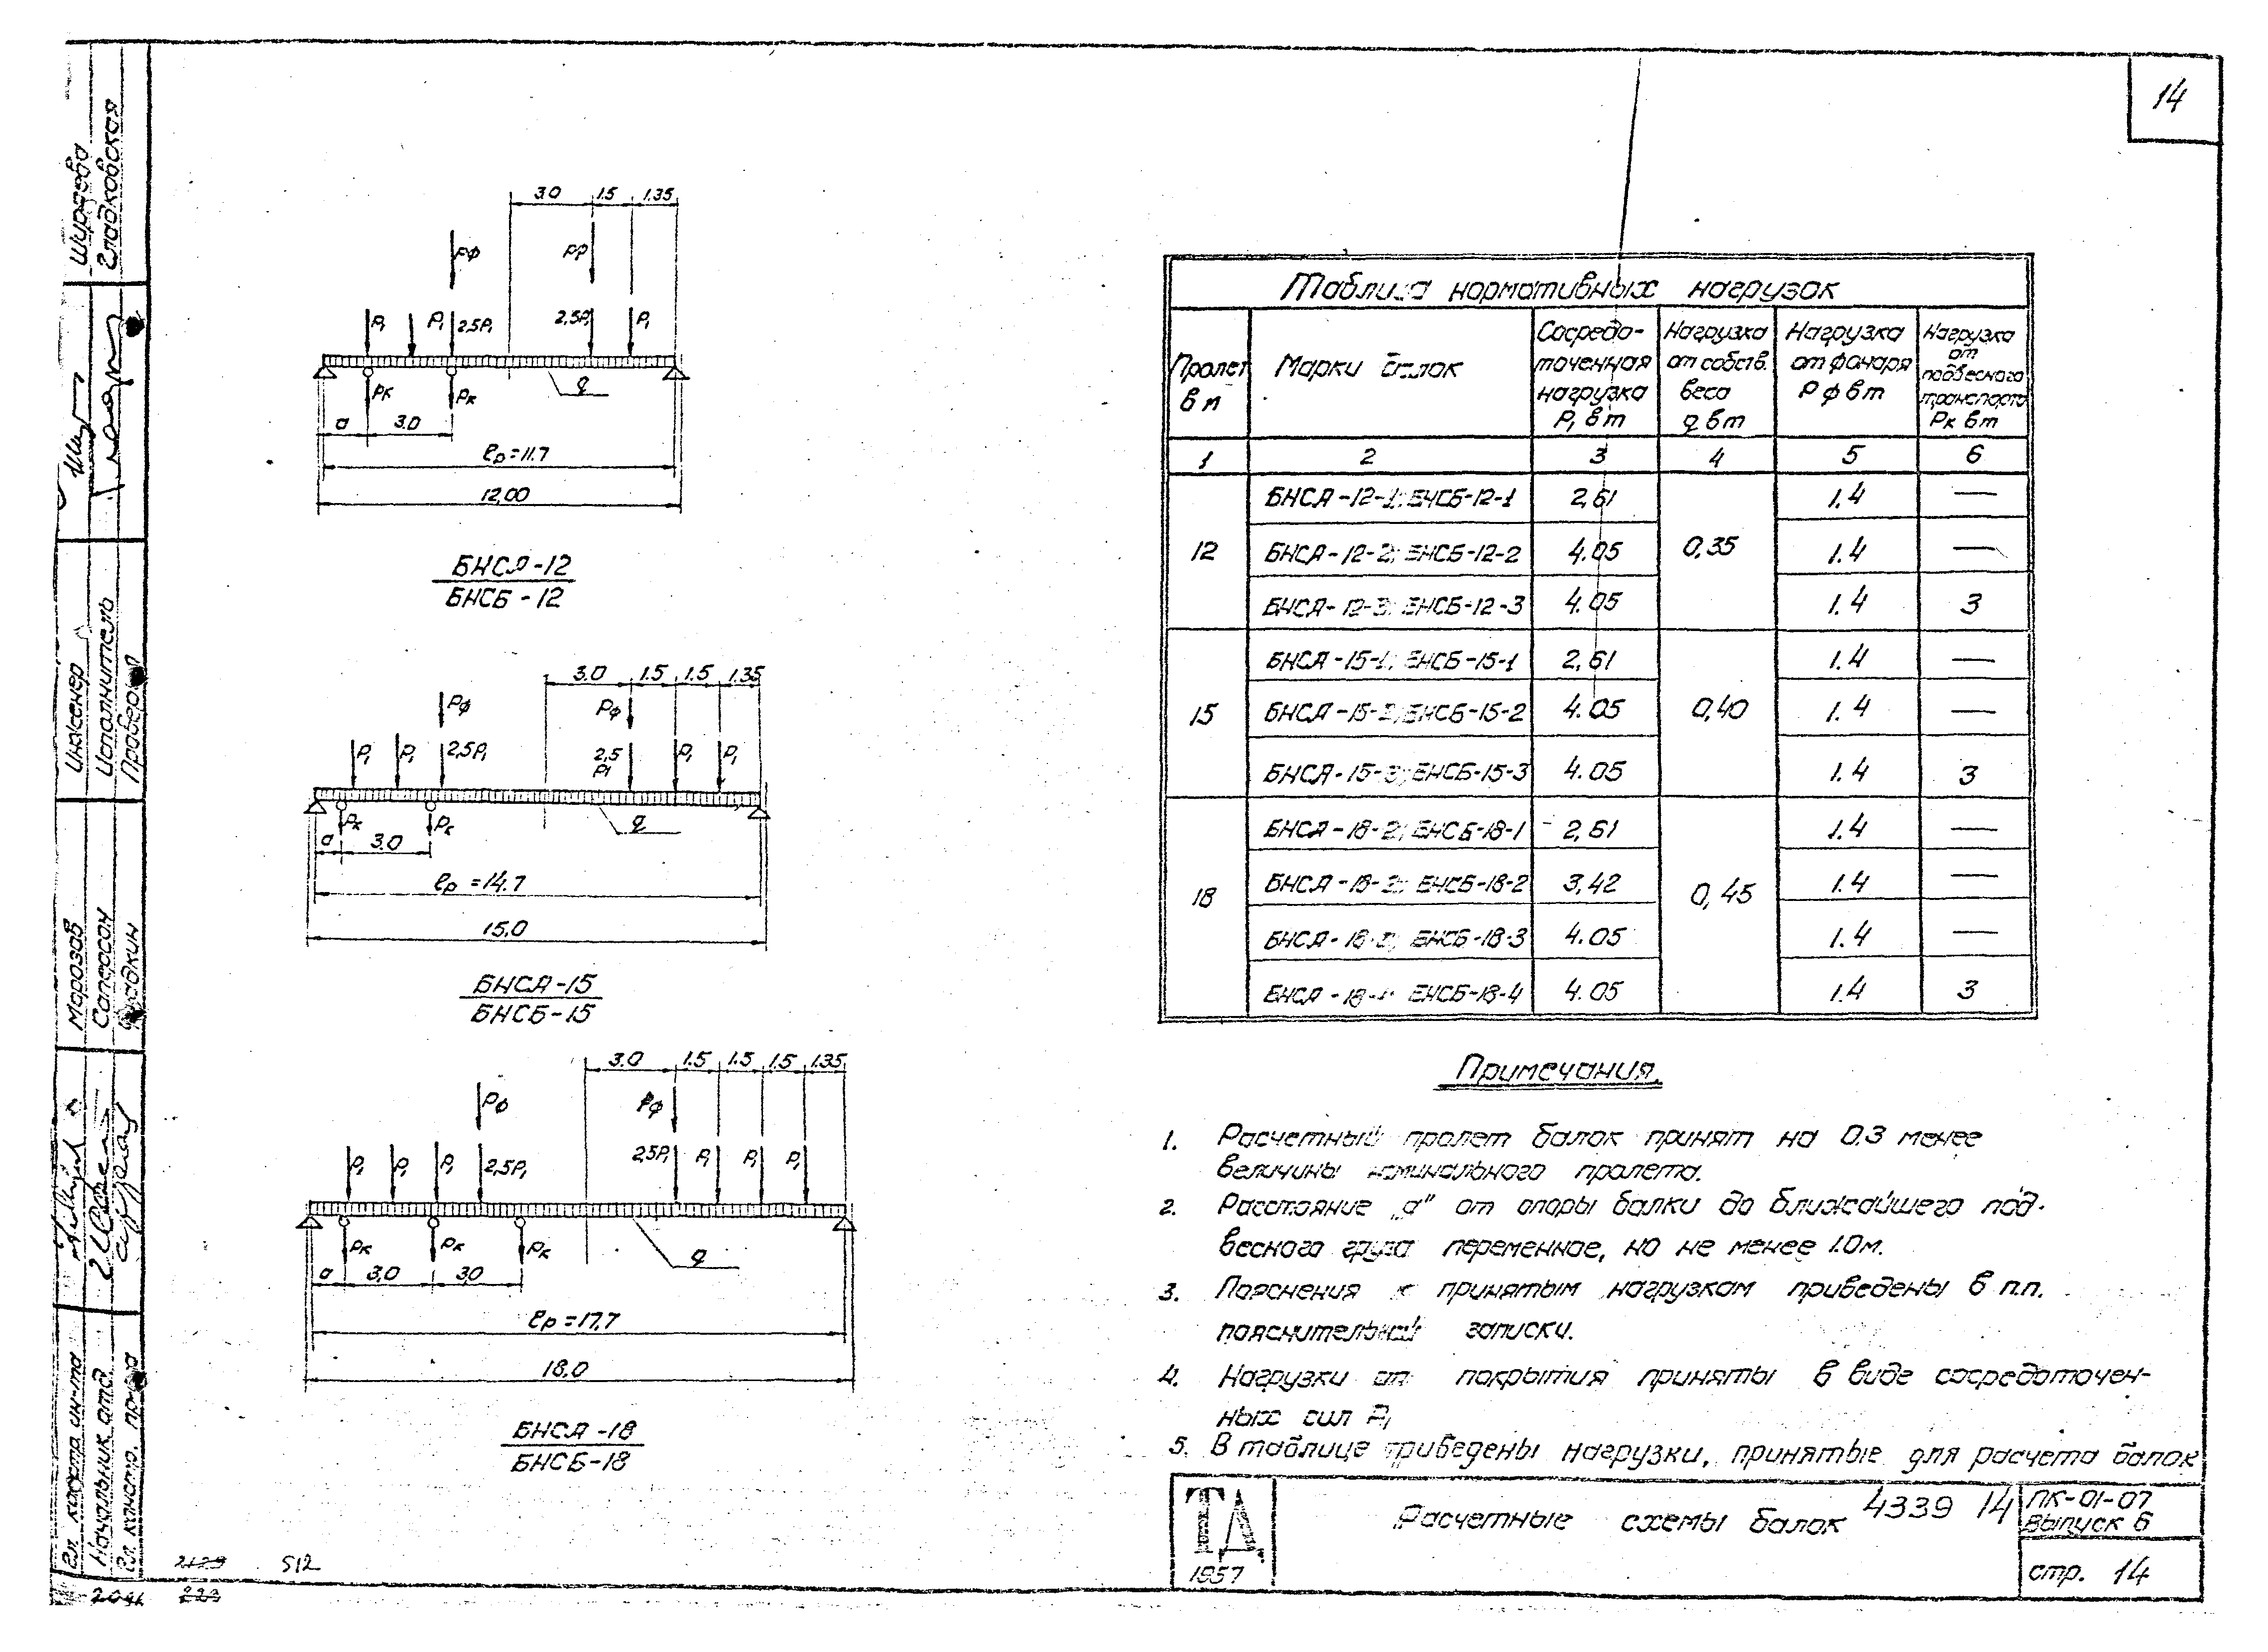 14
3.0 1.5 1.35
Рф Рф
Р₁ Р₁ 2,5Р₁ 2,5Р₁ Р₁
q
Рк Рк
а 3.0
ℓр=11.7
12,00
БНСА-12
БНСБ-12
3.0 1.5 1.5 1.35
Рф Рф
Р₁ Р₁ 2,5Р₁ 2,5 Р₁ Р₁ Р₁
Рк Рк q
а 3.0
ℓр=14.7
15,0
БНСА-15
БНСБ-15
3.0 1.5 1.5 1.5 1.35
Рф Рф
Р₁ Р₁ Р₁ 2,5Р₁ 2,5Р₁ Р₁ Р₁ Р₁
Рк Рк Рк q
а 3,0 3,0
ℓр=17,7
18,0
БНСА-18
БНСБ-18
Таблица нормативных нагрузок
Пролет в м
Марки балок
Сосредо-
точенная
нагрузка
Р₁ в т
Нагрузка
от собств.
веса
q в т
Нагрузка
от фонаря
Рф в т
Нагрузка
от
подвесного
транспорта
Рк в т
1 2 3 4 5 6
12 0,35
БНСА-12-1; БНСБ-12-1 2,61 1.4 —
БНСА-12-2; БНСБ-12-2 4.05 1.4 —
БНСА-12-3; БНСБ-12-3 4.05 1.4 3
15 0,40
БНСА-15-1; БНСБ-15-1 2,61 1.4 —
БНСА-15-2; БНСБ-15-2 4.05 1.4 —
БНСА-15-3; БНСБ-15-3 4.05 1.4 3
18 0,45
БНСА-18-2; БНСБ-18-1 2,61 1.4 —
БНСА-18-2; БНСБ-18-2 3,42 1.4 —
БНСА-18-3; БНСБ-18-3 4.05 1.4 —
БНСА-18-4; БНСБ-18-4 4.05 1.4 3
Примечания.
1. Расчетный пролет балок принят на 0.3 менее
величины номинального пролета.
2. Расстояние „а" от опоры балки до ближайшего под-
весного груза переменное, но не менее 1.0м.
3. Пояснения к принятым нагрузкам приведены в п.п.
пояснительной записки.
4. Нагрузки от покрытия приняты в виде сосредоточен-
ных сил Р₁
5. В таблице приведены нагрузки, принятые для расчета балок
ТД
1957
Расчетные схемы балок
4339 14
ПК-01-07
Выпуск 6
стр. 14
Гладковская
Инженер
Исполнитель
Проверил
Морозов
Сапарсон
Гл. констр. ин-та
Начальник отд.
Гл. констр. пр-та
2129 512
223